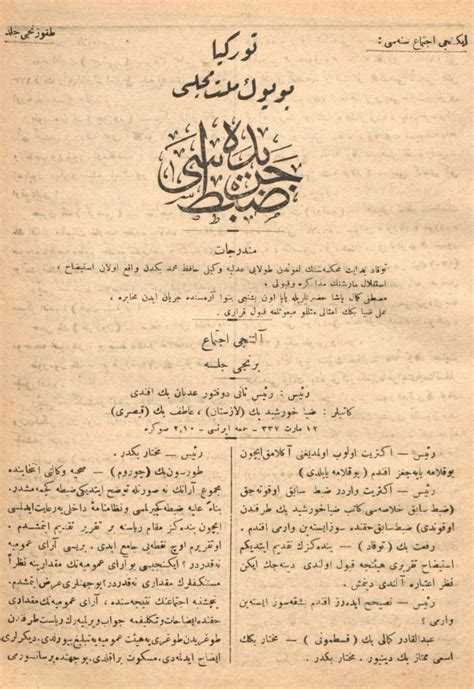 ایكنجی اجتماع سنه‌سی :
طقوزنجی جلد
توركیا
بویوك ملت مجلسی
ضبط جریده‌سی
مندرجات
توقاد بدایت محكمه‌سنك لغوندن طولایی عدلیه وكیلی حافظ محمد بكدن واقع اولان استیضاح ،
استقلال مارشنك مذاكره وقبولی ،
مصطفی كمال پاشا حضرتلریله پاپا اون بشنجی بنوا آره‌سنده جریان ایدن مخابره ،
علی ضیا بكك امثالی مثللو مبعوثلغه قبول قراری .
آلتنجی اجتماع
برنجی جلسه
رئیس : رئیس ثانی دوقتور عدنان بك افندی
كاتبلر : ضیا خورشید بك (لازستان) ، عاطف بك (قیصری)
۱۲ مارت ۳۳۷ — جمعه ایرتسی — ۲,۱۰ صوكره
رئیس — اكثریت اولوب اولمدیغنی آكلامق ایچون
یوقلامه یاپه‌جغز افندم (یوقلامه یاپلدی)
رئیس — اكثریت واردر ضبط سابق اوقونه‌جق
(ضبط سابق خلاصه‌سی كاتب ضیا خورشید بك طرفندن
اوقوندی) ضبط سابق حقنده سوز ایسته‌ین وارمی افندم .
رفعت بك (توقاد) — بنده‌كزك تقدیم ایتدیكم
استیضاح تقریری هیئتجه قبول اولندی دینه‌جك ایكن
نظر اعتباره آلندی دینمش .
رئیس — تصحیح ایده‌رز افندم بشقه سوز ایسته‌ین
وارمی ؟
عبدالقادر كمالی بك (قسطمونی) — مختار بكك
اسمی ممتاز بك دینیور . مختار بكدر .
رئیس — مختار بكدر .
طورسون بك (چوروم) — صحیه وكالتی انتخابنده
مجموع آرانك نه صورتله توضح ایتدیكی ضبطه كیمه‌مشدر .
بناء علیه ضبطه كچیرلمسی و نظامنامهٔ داخلی‌یه رعایت ایدلمسی
ایچون بنده‌كز مقام ریاسته بر تقریر تقدیم ایتمشدم .
او تقریرم اوچ نقطه‌یی جامع ایدی . بریسی آرای عمومیه
نه‌قدردر ؟ ایكنجیسی بو آرای عمومیه‌نك مقدارینه نظراً
مستنكفلرك مقداری نه‌قدردر ؟ بو جهتلری عرض ایتمشدم .
پنجشنبه اجتماعنك نتیجه‌سنده ، آرای عمومیه‌نك مقداری
حقنده ایضاحات و تكلیفمه جواب ویریله‌رك ریاست طرفندن
طوغریدن طوغری‌یه هیئت عمومیه‌یه تبلیغ بیورلدی . دیكرلری
ایضاح ایدلمدی . مسكوت براقلدی . بو جهتده بر سانسورمی